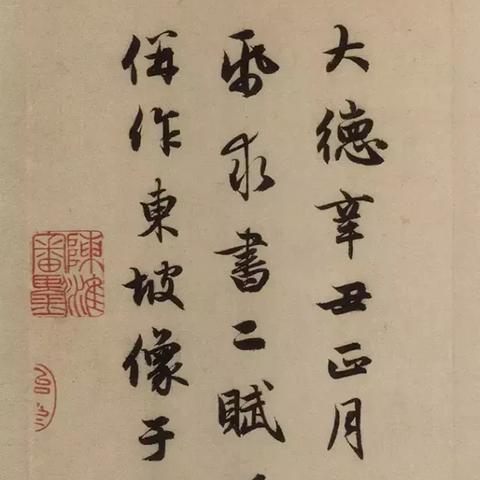 大德辛丑正月
帋求書二賦
併作東坡像于
陳淮